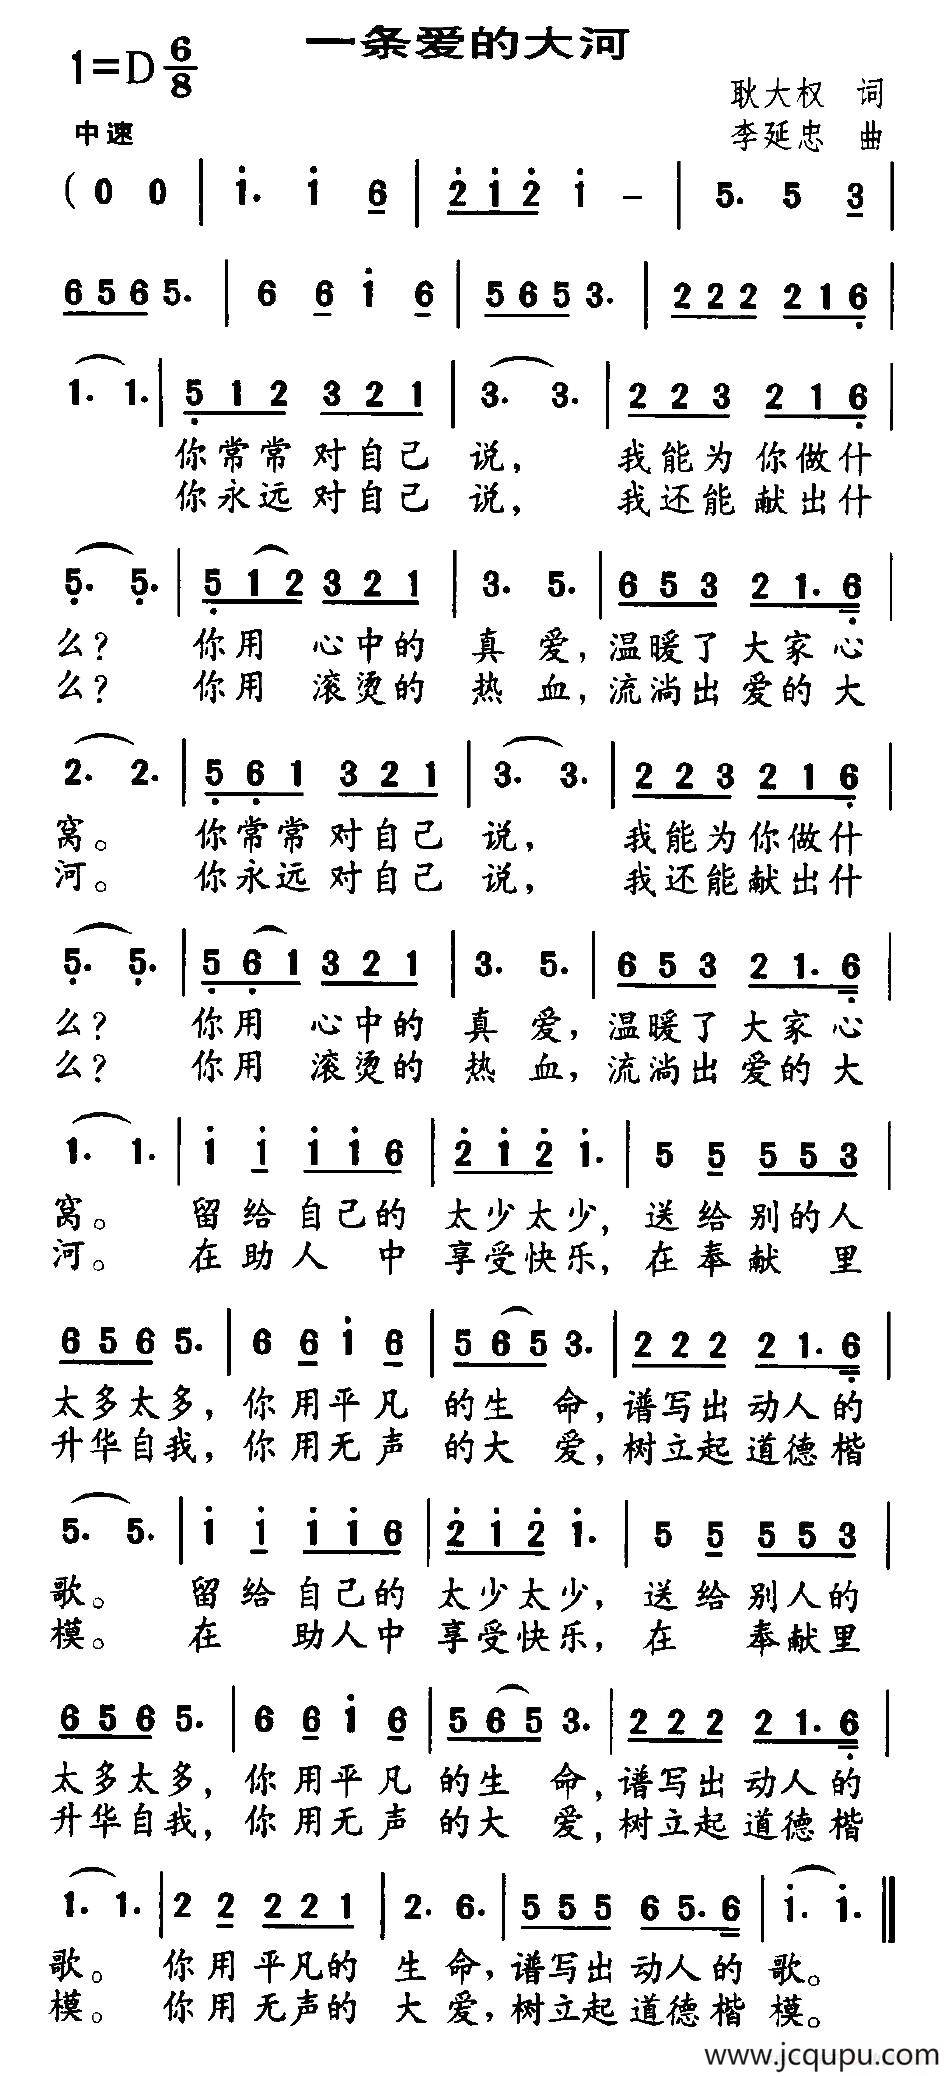 一条爱的大河
1=D 6/8
耿大权 词
中速
李延忠 曲
( 0 0 | i. i 6 | 2 i 2 i – | 5. 5 3 |
6 5 6 5. | 6 6 i 6 | 5 6 5 3. | 2 2 2 2 1 6 |
1. 1. | 5 1 2 3 2 1 | 3. 3. | 2 2 3 2 1 6 |
你常常对自己 说， 我能为你做什
你永远对自己 说， 我还能献出什
5. 5. | 5 1 2 3 2 1 | 3. 5. | 6 5 3 2 1. 6 |
么？ 你用 心中的 真 爱，温暖了大家心
么？ 你用 滚烫的 热 血，流淌出爱的大
2. 2. | 5 6 1 3 2 1 | 3. 3. | 2 2 3 2 1 6 |
窝。 你常常对自己 说， 我能为你做什
河。 你永远对自己 说， 我还能献出什
5. 5. | 5 6 1 3 2 1 | 3. 5. | 6 5 3 2 1. 6 |
么？ 你用 心中的 真 爱，温暖了大家心
么？ 你用 滚烫的 热 血，流淌出爱的大
1. 1. | i i i i 6 | 2 i 2 i. | 5 5 5 5 3 |
窝。 留给自己的 太少太少，送给别的人
河。 在助人 中 享受快乐，在奉献 里
6 5 6 5. | 6 6 i 6 | 5 6 5 3. | 2 2 2 2 1. 6 |
太多太多，你用平凡 的生 命，谱写出动人的
升华自我，你用无声 的大 爱，树立起道德楷
5. 5. | i i i i 6 | 2 i 2 i. | 5 5 5 5 3 |
歌。 留给自己的 太少太少，送给别人的
模。 在 助人中 享受快乐，在 奉献里
6 5 6 5. | 6 6 i 6 | 5 6 5 3. | 2 2 2 2 1. 6 |
太多太多，你用平凡 的生 命，谱写出动人的
升华自我，你用无声 的大 爱，树立起道德楷
1. 1. | 2 2 2 2 1 | 2. 6. | 5 5 5 6 5. 6 | i. i. ‖
歌。 你用平凡的 生 命，谱写出动人的 歌。
模。 你用无声的 大 爱，树立起道德楷 模。
www.jcqupu.com